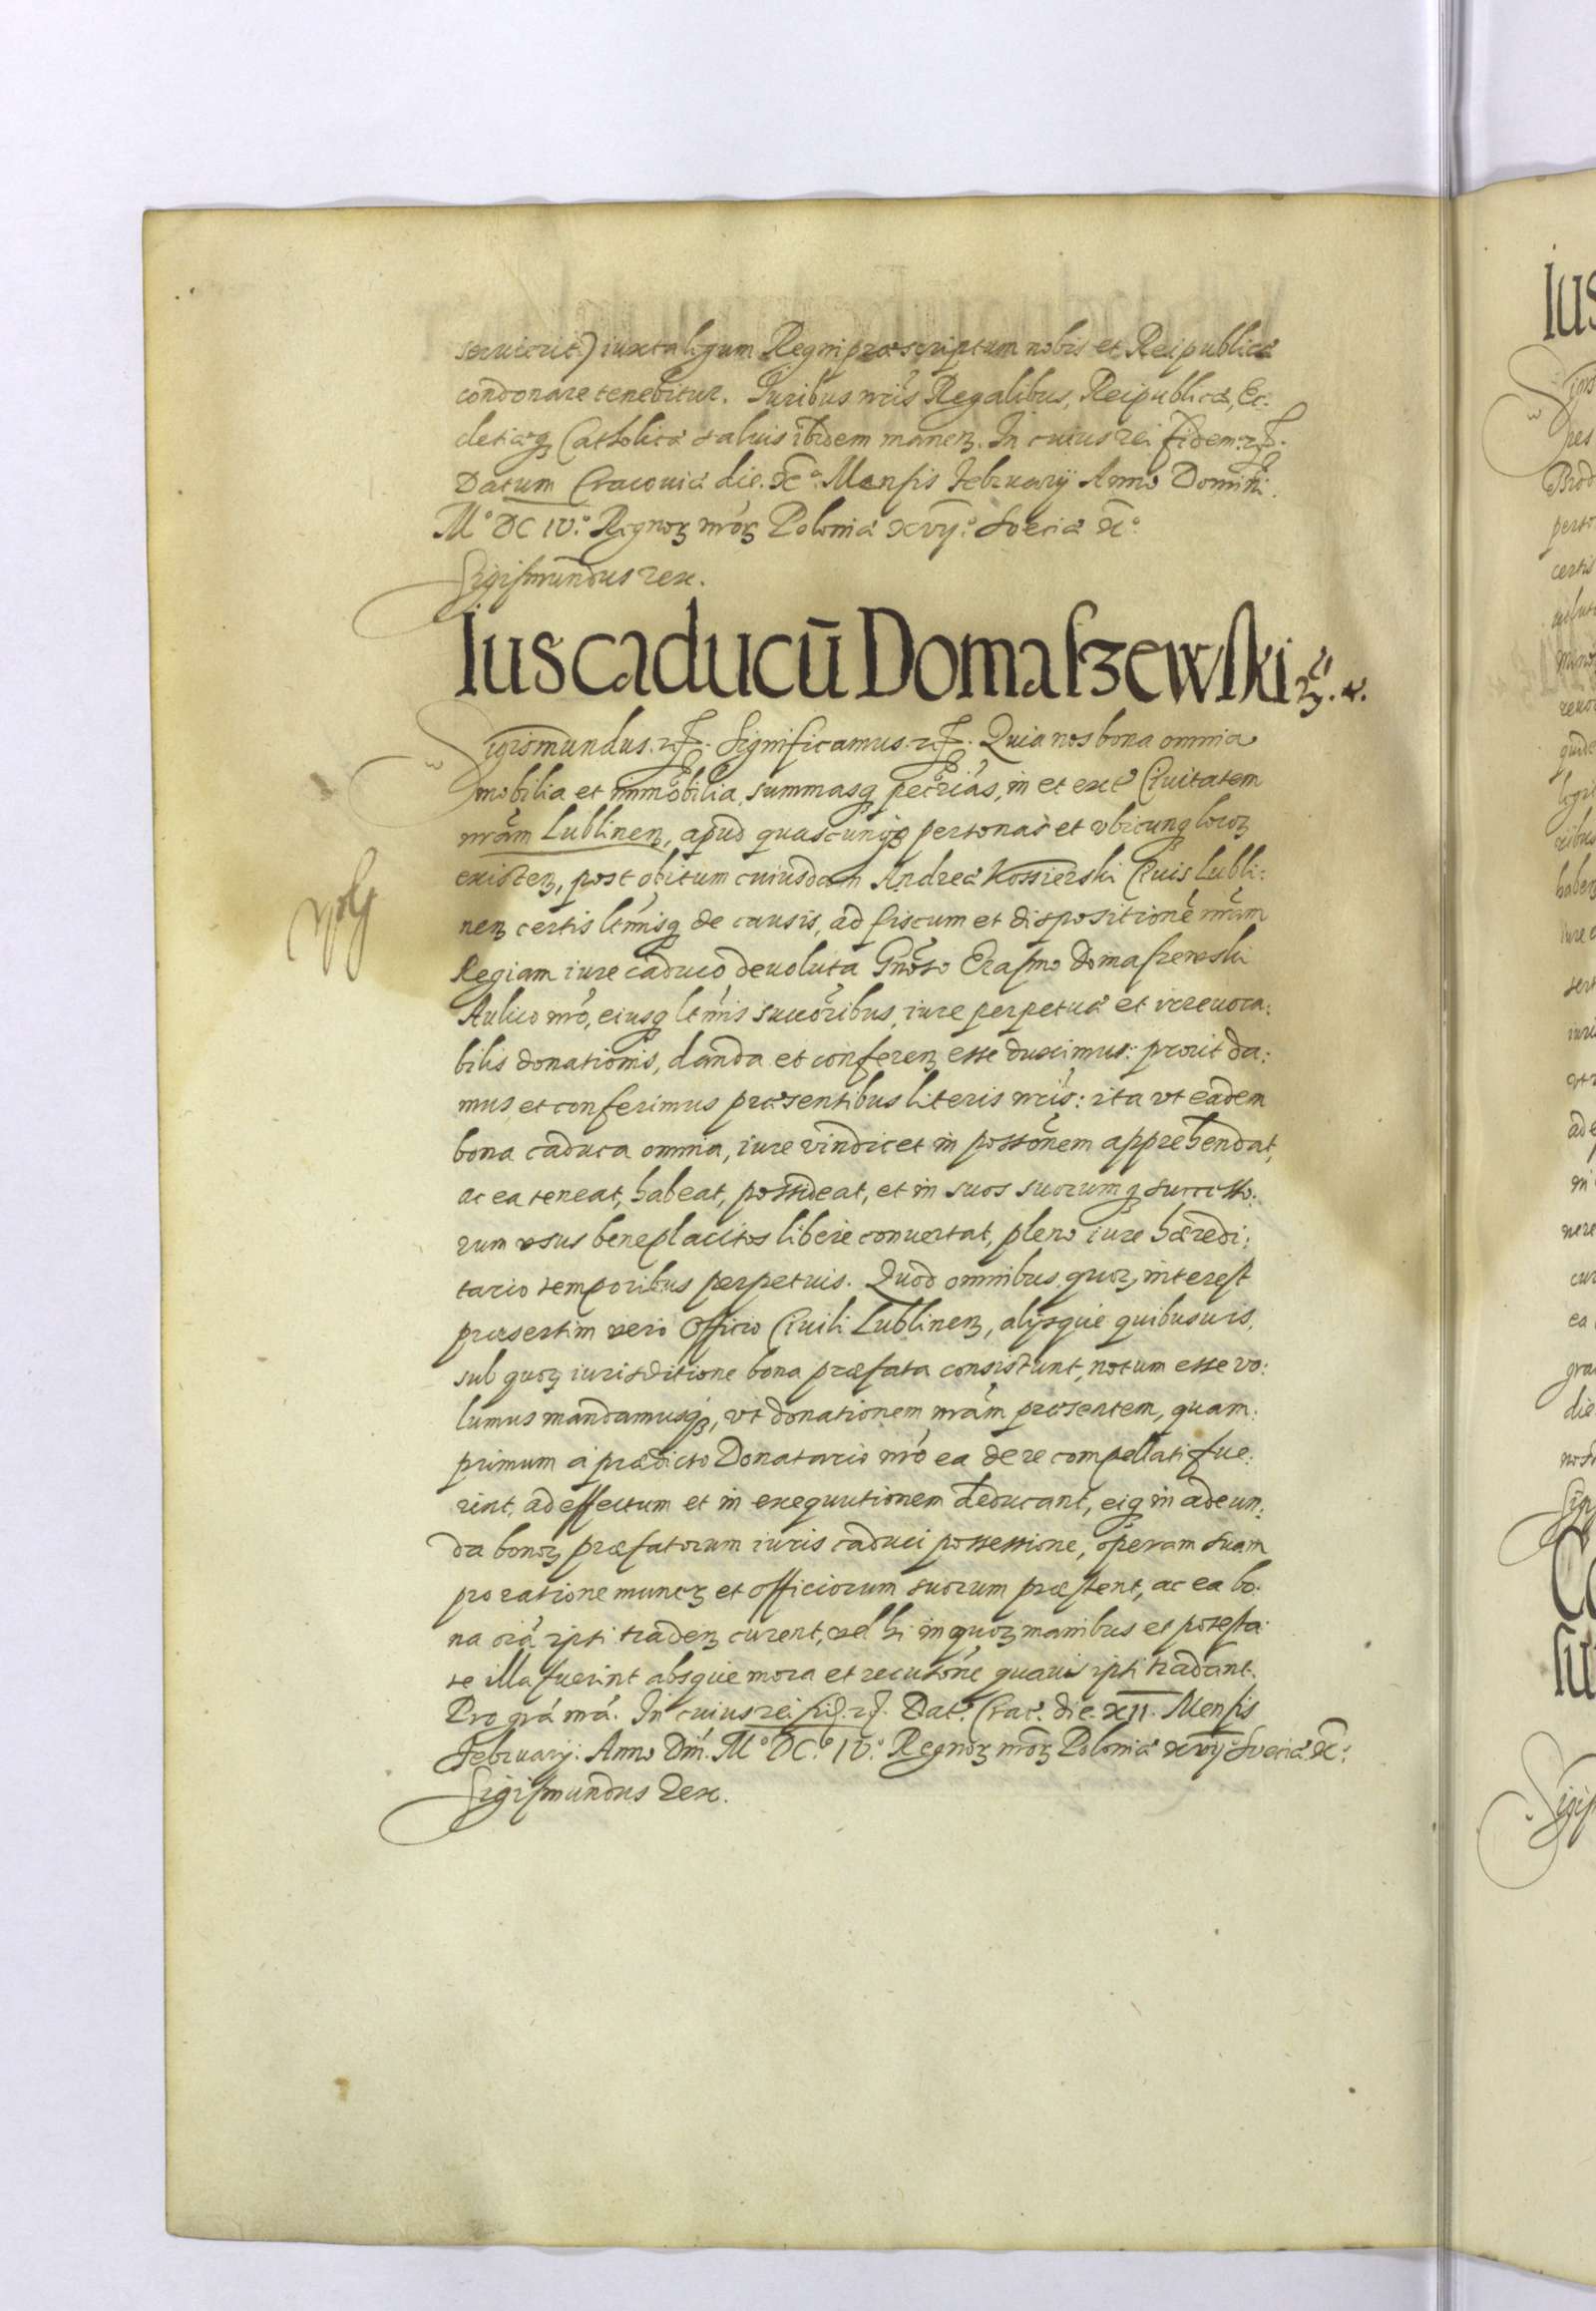 seruierit) iuxta legum Regni præscriptum nobis et Reipublicæ
condonare tenebitur. Iuribus nris Regalibus, Reipublicæ, Ec:
clesiæq Catholicæ saluis ibidem manen. In cuius rei fidem
Datum Cracouiæ die. X.a Mensis February Anno Domini.
M.o DC IV.o Regnor nror Poloniæ xvij.o Sveciæ X.o
Sigismundus rex.
Ius caducū Domaszewski
Sigismundus. Significamus. Quia nos bona omnia
mobilia et immobilia, summasq pecrias, in et ext Ciuitatem
nram Lublinen, apud quascunq personas et vbicunq locor
existen, post obitum cuiusdam Andreæ Kossierski Ciuis Lubli:
nen certis ltmisq de causis, ad fiscum et dispositionē nram
Regiam iure caduco deuoluta Gnoso Erasmo Domaszewski
Aulico nro, eiusq ltmis succoribus, iure perpetuæ et irreuoca:
bilis donationis, danda et conferen esse duximus: prout da:
mus et conferimus præsentibus literis nris: ita vt eadem
bona caduca omnia, iure vindicet in possonem apprehendat,
ac ea teneat, habeat, possideat, et in suos suorumq successo:
rum vsus beneplacitos libere conuertat, pleno iure hæredi:
tario temporibus perpetuis. Quod omnibus quor, interest
præsertim vero Officio Ciuili Lublinen, alysque quibusuis,
sub quor iurisditione bona præfata consistunt, notum esse vo:
lumus mandamusq, vt donationem nram præsentem, quam:
primum a prædicto Donatario nro ea de re compellati fue:
rint, ad effectum et in exequutionem deducant, eiq in adeun:
da bonor præfatorum iuris caduci possessione, operam suam
pro ratione muner et officiorum suorum præstent, ac ea bo:
na oia ipsi traden curent, vel hi in quor manibus et potesta:
te illa fuerint absque mora et recusone quauis ipsi tradant.
Pro gra nra. In cuius rei fid. Dat. Crac. die. XII. Mensis
February: Anno Dni. M.o DC.o IV.o Regnor nror Poloniæ xvij Sveciæ X.o
Sigismundus Rex.